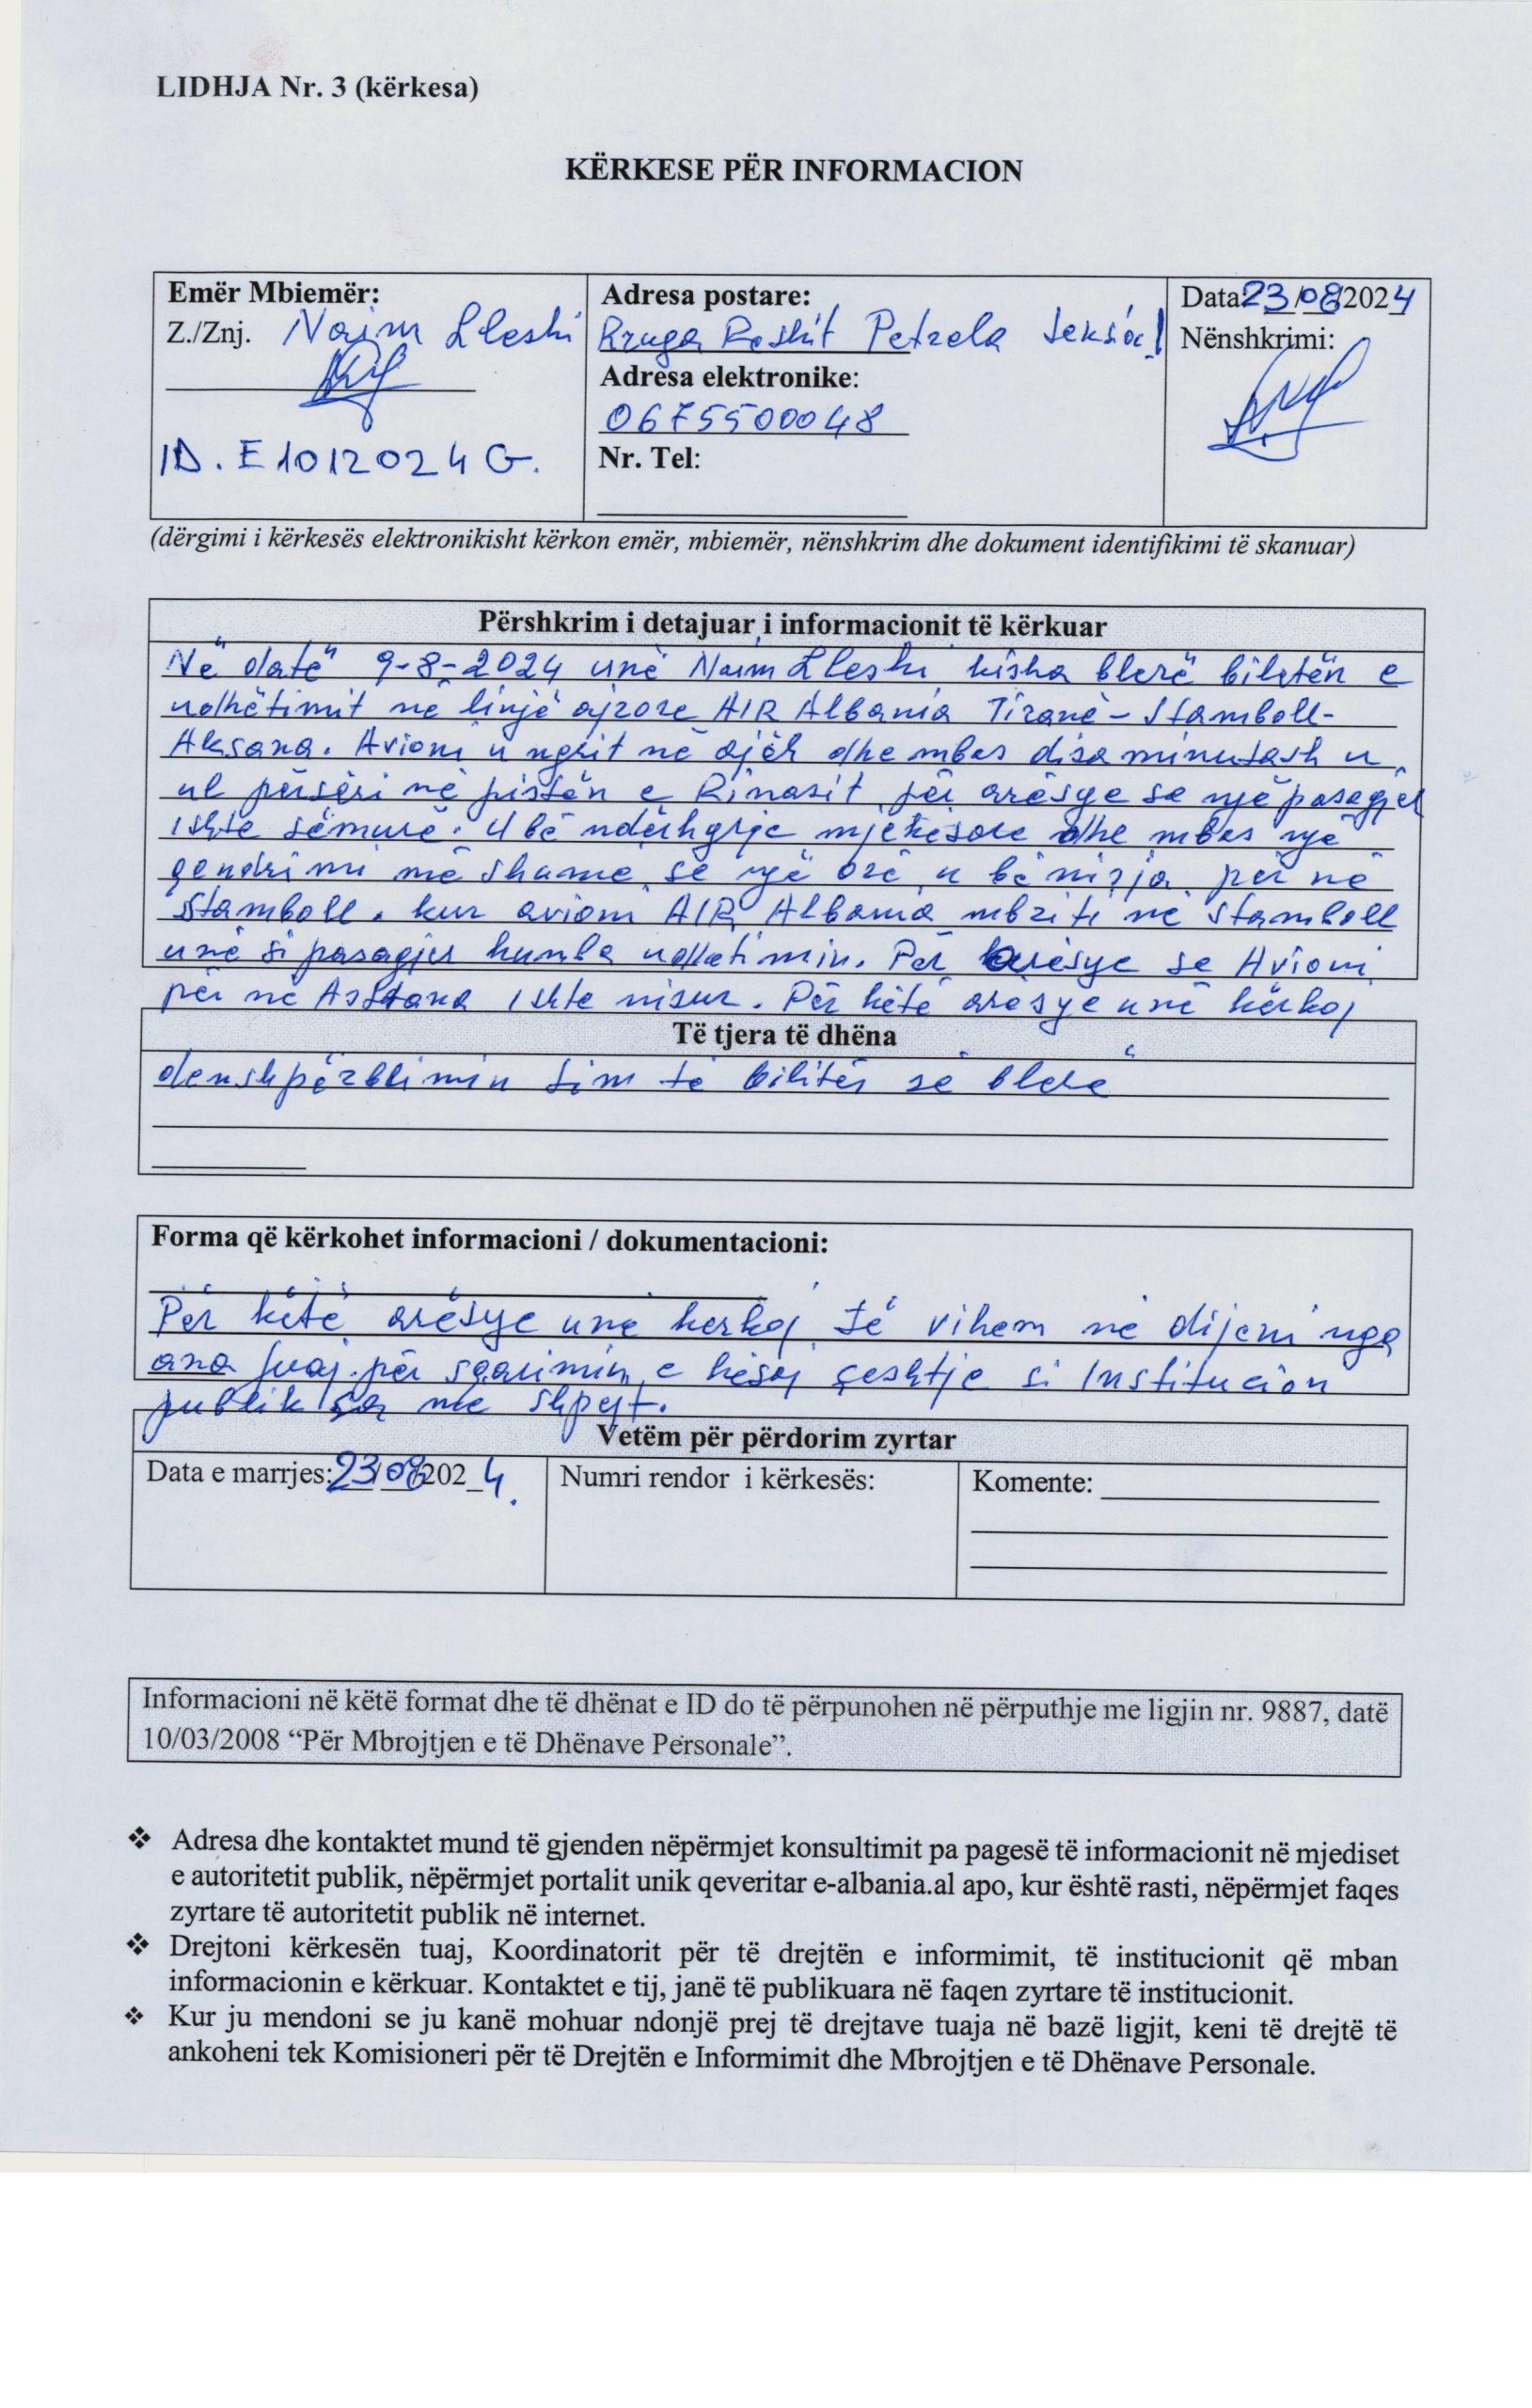 LIDHJA Nr. 3 (kërkesa)
KËRKESE PËR INFORMACION
Emër Mbiemër:
Z./Znj. Naim Lleshi
ID. E1012024G.
Adresa postare:
Rruga Reshit Petrela
Adresa elektronike:
0675500048
Nr. Tel:
Data: 23/08/2024
Nënshkrimi:
(dërgimi i kërkesës elektronikisht kërkon emër, mbiemër, nënshkrim dhe dokument identifikimi të skanuar)
Përshkrim i detajuar i informacionit të kërkuar
Në datë 9-8-2024 unë Naim Lleshi kisha blerë biletën e
udhëtimit në linjë ajrore AIR Albania Tiranë - Stamboll-
Aksana. Avioni u ngrit në ajër dhe mbas disa minutash u
ul përsëri në pistën e Rinasit për arësye se një pasagjer
ishte sëmurë. U bë ndërhyrje mjekësore dhe mbas një
qendrimi më shumë se një orë u bë nisja për në
Stamboll. kur avioni AIR Albania mbriti në Stamboll
unë si pasagjer humba udhetimin. Për arësye se Avioni
për në Asstana ishte nisur. Për këtë arësye unë kërkoj
Të tjera të dhëna
demshpërblimin tim të bilitës së blerë
Forma që kërkohet informacioni / dokumentacioni:
Për këtë arësye unë kerkoj të vihem në dijeni nga
ana juaj për sqarimin e kësaj çeshtje si Institucion
publik sa më shpejt.
Vetëm për përdorim zyrtar
Data e marrjes: 23/08/2024.
Numri rendor i kërkesës:
Komente:
Informacioni në këtë format dhe të dhënat e ID do të përpunohen në përputhje me ligjin nr. 9887, datë
10/03/2008 “Për Mbrojtjen e të Dhënave Personale”.
❖ Adresa dhe kontaktet mund të gjenden nëpërmjet konsultimit pa pagesë të informacionit në mjediset
e autoritetit publik, nëpërmjet portalit unik qeveritar e-albania.al apo, kur është rasti, nëpërmjet faqes
zyrtare të autoritetit publik në internet.
❖ Drejtoni kërkesën tuaj, Koordinatorit për të drejtën e informimit, të institucionit që mban
informacionin e kërkuar. Kontaktet e tij, janë të publikuara në faqen zyrtare të institucionit.
❖ Kur ju mendoni se ju kanë mohuar ndonjë prej të drejtave tuaja në bazë ligjit, keni të drejtë të
ankoheni tek Komisioneri për të Drejtën e Informimit dhe Mbrojtjen e të Dhënave Personale.